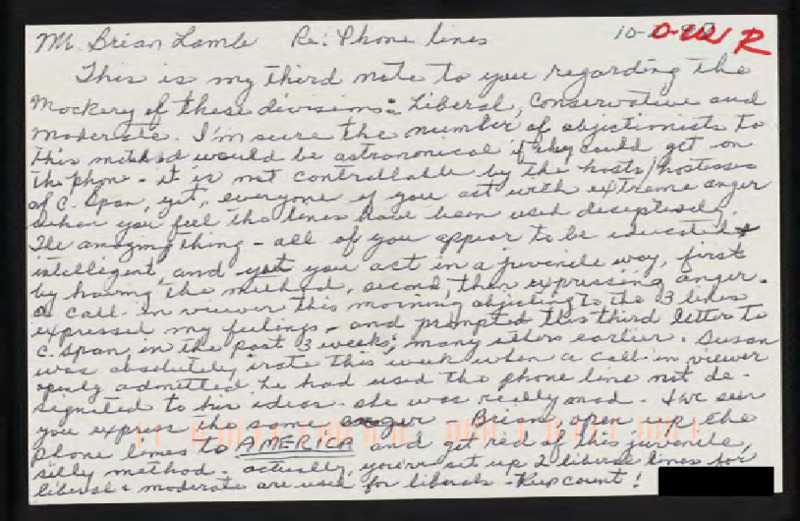 Mr. Brian Lamb Re: Phone lines 10-
This is my third note to you regarding the
Mockery of these divisions: Liberal, Conservative and
moderate. I'm sure the number of objectionists to
this method would be astronomical if they could get on
the phone - it is not controllable by the hosts/hostesses
of C. Span, yet, everyone of you act with extreme anger
when you feel the lines have been used deceptively.
The amazing thing - all of you appear to be educated &
intelligent, and yet you act in a juvenile way, first
by having the method, second then expressing anger.
a call-in viewer this morning objecting to the 3 lines
expressed my feelings - and prompted this third letter to
C. Span, in the past 3 weeks; many others earlier. Susan
was absolutely irate this week when a call-in viewer
openly admitted he had used the phone line not de-
signited to his ideas. she was really mad. I've seen
you express the same anger. Brian, open up the
phone lines to AMERICA and get red of this juvenile,
silly method. actually, you're set up 2 liberal lines for
liberal & moderate are used for liberals - Keep count!